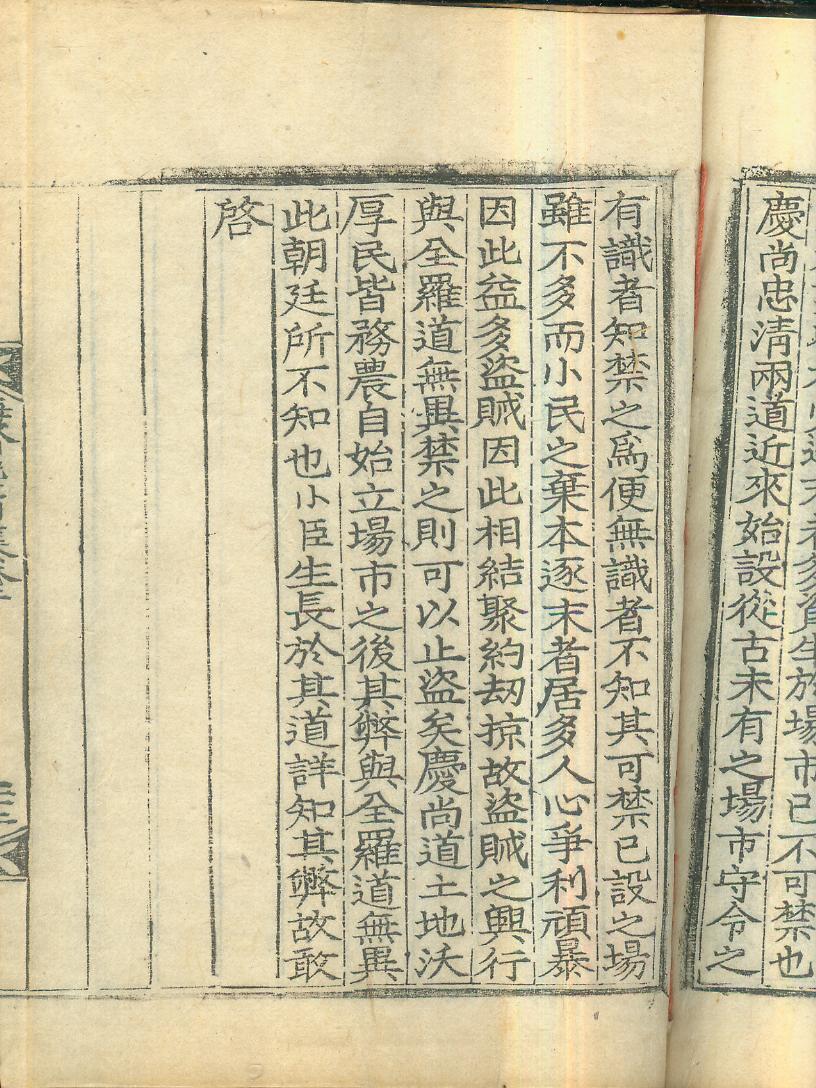 末者多資生於場市已不可禁也
慶尚忠淸兩道近來始設從古未有之場市守令之
有識者知禁之爲便無識者不知其可禁已設之場
雖不多而小民之棄本逐末者居多人心爭利頑暴
因此益多盜賊因此相結聚約刧掠故盜賊之興行
與全羅道無異禁之則可以止盜矣慶尚道土地沃
厚民皆務農自始立場市之後其弊與全羅道無異
此朝廷所不知也小臣生長於其道詳知其弊故敢
啓